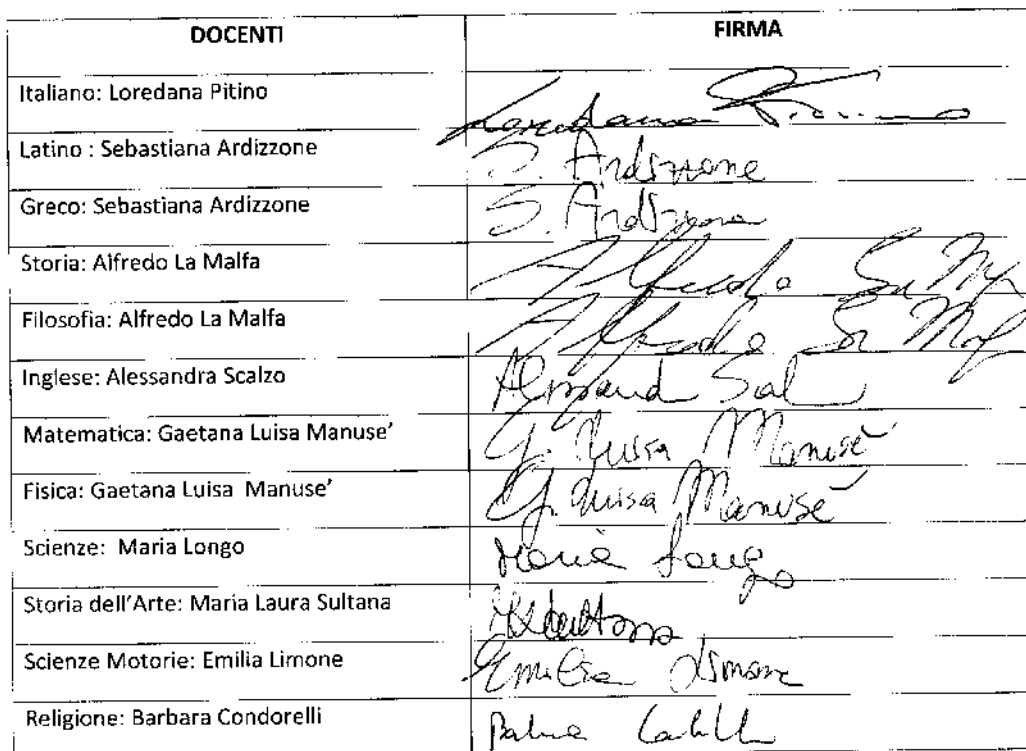 DOCENTI FIRMA
Italiano: Loredana Pitino Loredana Pitino
Latino : Sebastiana Ardizzone S. Ardizzone
Greco: Sebastiana Ardizzone S. Ardizzone
Storia: Alfredo La Malfa Alfredo
Filosofia: Alfredo La Malfa Alfredo
Inglese: Alessandra Scalzo
Matematica: Gaetana Luisa Manuse’ G. Luisa Manusè
Fisica: Gaetana Luisa Manuse’ G. Luisa Manusè
Scienze: Maria Longo Maria Longo
Storia dell’Arte: Maria Laura Sultana
Scienze Motorie: Emilia Limone Emilia Limone
Religione: Barbara Condorelli